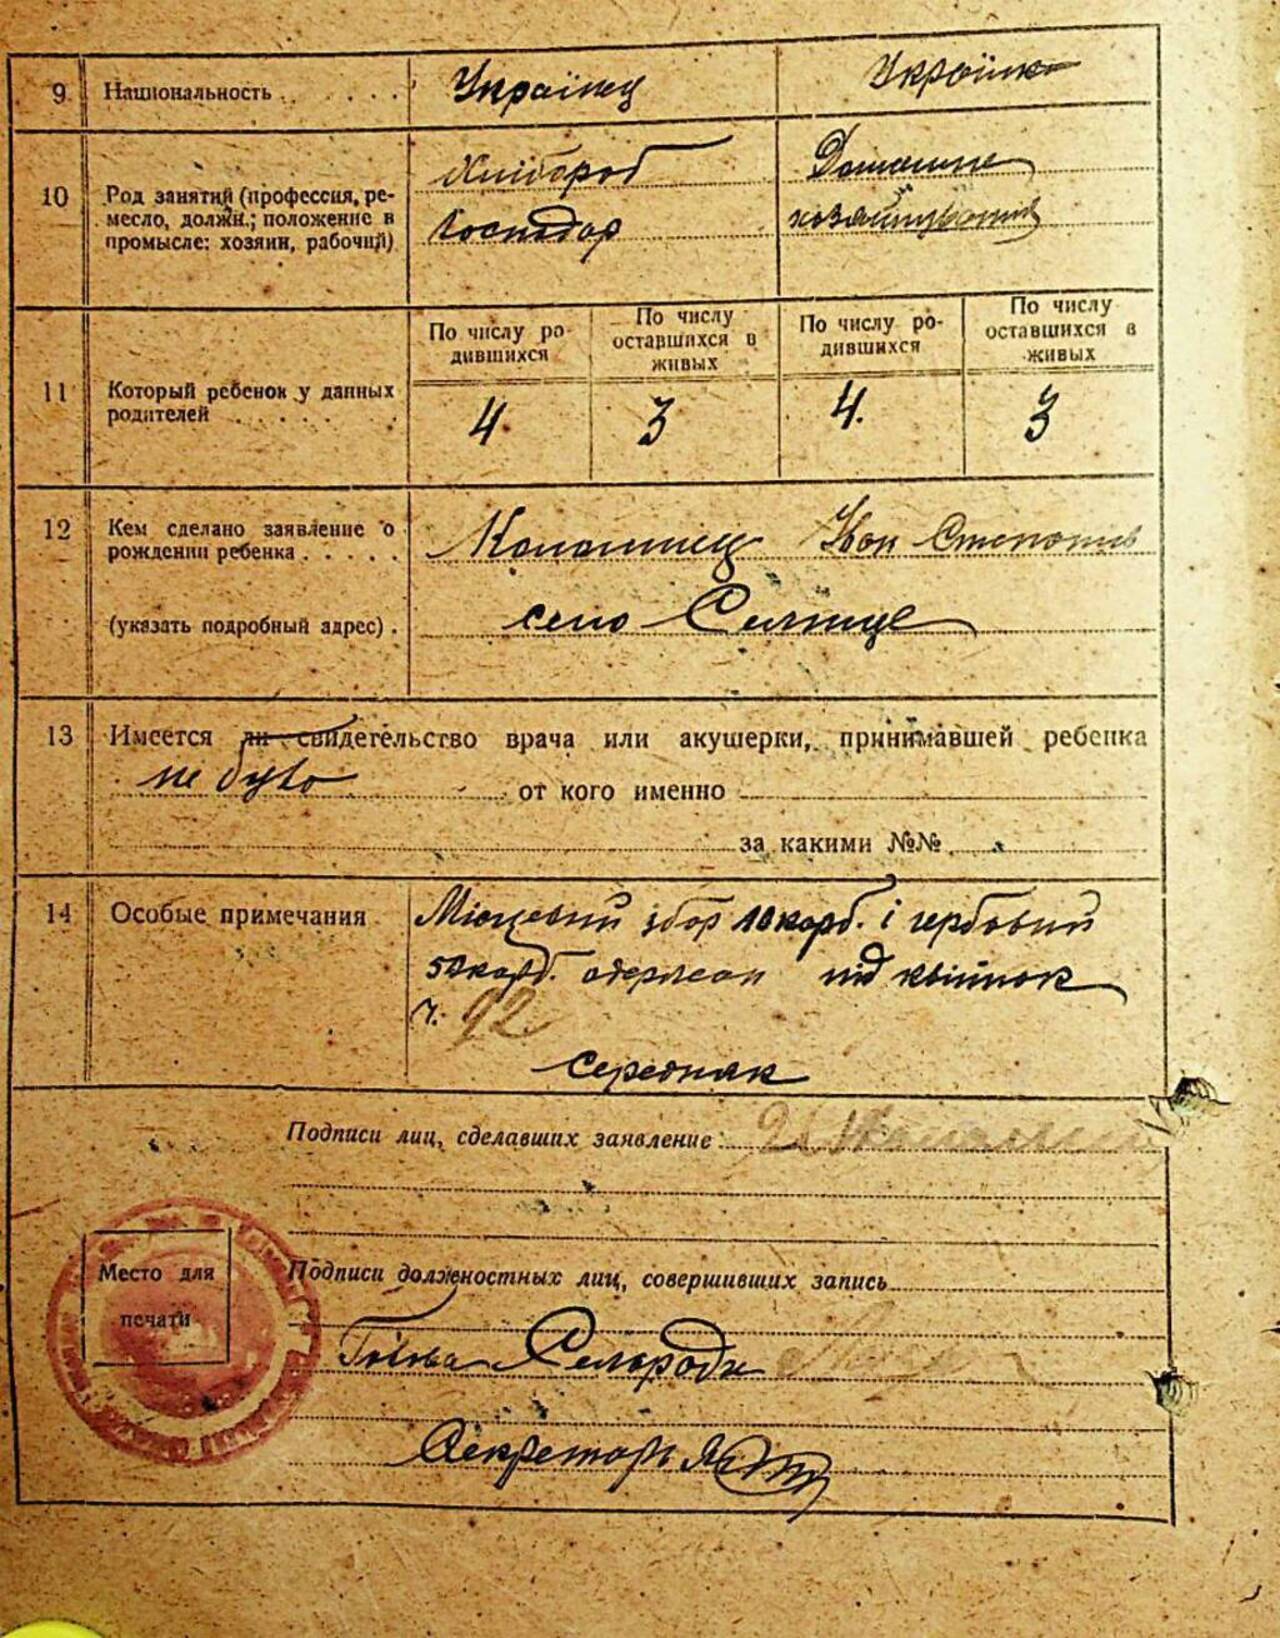 9 Национальность . . . . . Українец Українка
10 Род занятий (профессия, ре-
месло, должн.; положение в
промысле: хозяин, рабочий)
Хлібороб
Господар
Домашне
хозяйнування
По числу ро-
дившихся
По числу
оставшихся в
живых
По числу ро-
дившихся
По числу
оставшихся в
живых
11 Который ребенок у данных
родителей . . . . . .
4 3 4. 3
12 Кем сделано заявление о
рождении ребенка . . . . .
(указать подробный адрес) .
Коломиец Іван Степанів
село Селище
13 Имеется ли свидетельство врача или акушерки, принимавшей ребенка
не було от кого именно
за какими №№
14 Особые примечания
Місцевий збор 10 карб. і гербовий
50 карб. одержан під квіток
ч. 92
Середняк
Подписи лиц, сделавших заявление:
Место для
печати
Подписи должностных лиц, совершивших запись
Голова Сельради
Секретарь